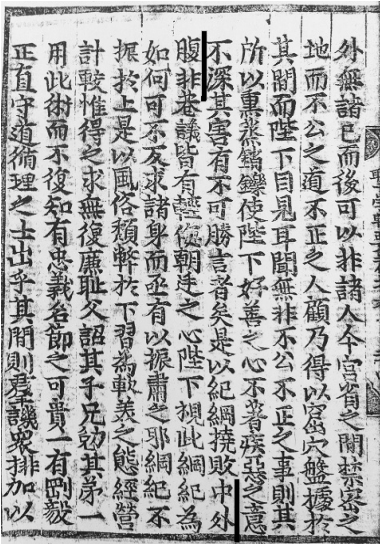 外無諸己而後可以非諸人今宮省之間禁密之
地而不公之道不正之人顧乃得以窟穴盤據於
其間而陛下目見耳聞無非不公不正之事則其
所以熏烝銷鑠使陛下好善之心不著疾惡之意
不深其害有不可勝言者矣是以紀綱撓敗中外
腹非巷議皆有輕侮朝廷之心陛下視此綱紀為
如何可不反求諸身而亟有以振肅之耶綱紀不
振於上是以風俗頹弊於下習為軟美之態經營
計較惟得之求無復廉耻父詔其子兄勉其弟一
用此術而不復知有忠義名節之可貴一有剛毅
正直守道循理之士出乎其間則羣譏衆排加以